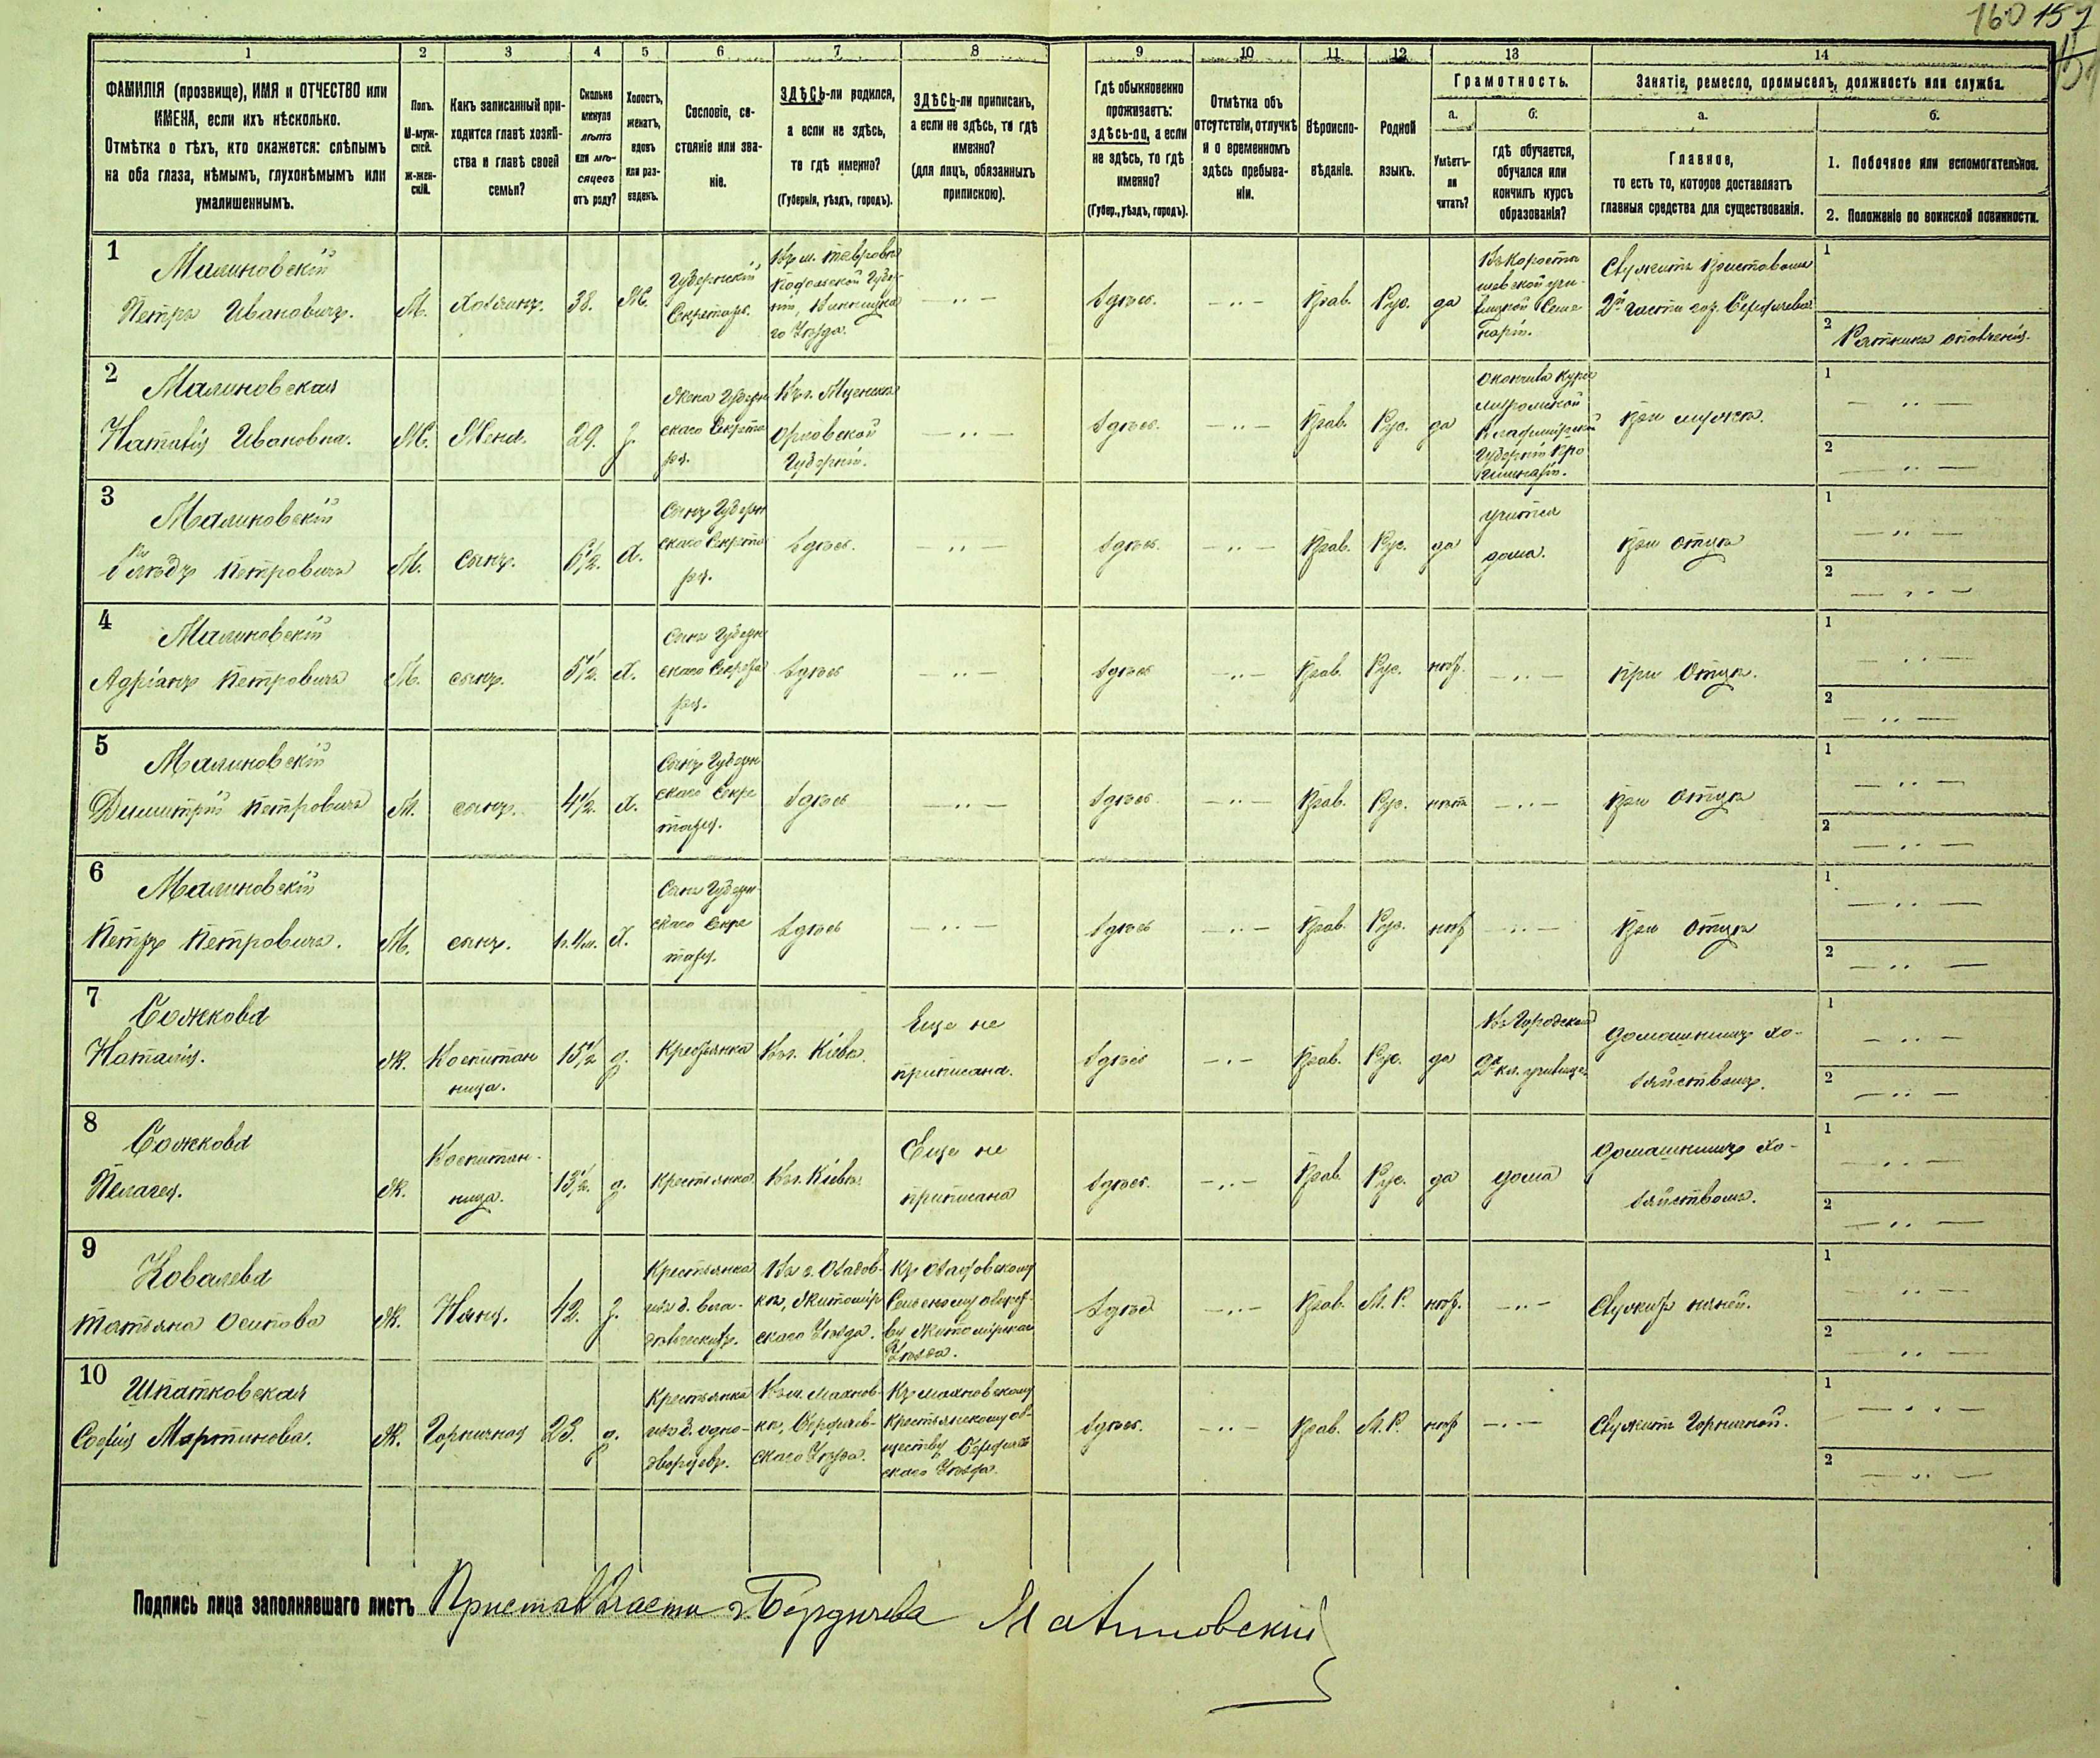 160 157
151
1 2 3 4 5 6 7 8 9 10 11 12 13 14
ФАМИЛІЯ (прозвище), ИМЯ и ОТЧЕСТВО или
ИМЕНА, если ихъ нѣсколько.
Отмѣтка о тѣхъ, кто окажется: слѣпымъ
на оба глаза, нѣмымъ, глухонѣмымъ или
умалишеннымъ.
Полъ.
М-муж-
ской.
ж-жен-
скій.
Какъ записанный при-
ходится главѣ хозяй-
ства и главѣ своей
семьи?
Сколько
минуло
лѣтъ
или мѣ-
сяцевъ
отъ роду?
Холостъ,
женатъ,
вдовъ
или раз-
веденъ.
Сословіе, со-
стояніе или зва-
ніе.
ЗДѢСЬ-ли родился,
а если не здѣсь,
то гдѣ именно?
(Губернія, уѣздъ, городъ).
ЗДѢСЬ-ли приписанъ,
а если не здѣсь, то гдѣ
именно?
(для лицъ, обязанныхъ
припискою).
Гдѣ обыкновенно
проживаетъ:
здѣсь-ли, а если
не здѣсь, то гдѣ
именно?
(Губер., уѣздъ, городъ).
Отмѣтка объ
отсутствіи, отлучкѣ
и о временномъ
здѣсь пребыва-
ніи.
Вѣроиспо-
вѣданіе.
Родной
языкъ.
Грамотность.
а.
Умѣетъ-
ли
читать?
б.
гдѣ обучается,
обучался или
кончилъ курсъ
образованія?
Занятіе, ремесло, промыселъ, должность или служба.
а.
Главное,
то есть то, которое доставляетъ
главныя средства для существованія.
б.
1. Побочное или вспомогательное.
2. Положеніе по воинской повинности.
1
Малиновскій
Петръ Ивановичъ.
М.
Хозяинъ.
38.
Ж.
Губернскій
Секретарь.
Подольской Губер-
ніи, Винницка
го Уѣзда.
— „ —
Здѣсь.
— „ —
Прав.
Рус.
да
Въ Корости-
шевской учи-
тельской Семи-
наріи.
Служитъ Приставомъ
2й части гор. Бердичева.
1
2
Ратникъ ополченія.
2
Малиновская
Наталія Ивановна.
Ж.
Жена.
29.
З.
Жена Губерн
скаго Секрета
ря.
Въ г. Мценскѣ
Орловской
Губерніи.
— „ —
Здѣсь.
— „ —
Прав.
Рус.
да
Окончила курсъ
Владимірской
Губерніи Про
гимназіи.
При мужѣ.
1
— „ —
2
— „ —
3
Малиновскій
Петровичъ
М.
сынъ.
6½.
Х.
Сынъ Губерн
скаго Секрета
ря.
Здѣсь.
— „ —
Здѣсь.
— „ —
Прав.
Рус.
да
учится
дома.
При Отцѣ
1
— „ —
2
— „ —
4
Малиновскій
Адріанъ Петровичъ
М.
сынъ.
5½.
Х.
Сынъ Губерн
скаго Секрета
ря.
Здѣсь
— „ —
Здѣсь
— „ —
Прав.
Рус.
нѣтъ.
— „ —
При Отцѣ.
1
— „ —
2
— „ —
5
Малиновскій
Димитрій Петровичъ
М.
сынъ.
4½.
Х.
Сынъ Губерн
скаго Секре
таря.
Здѣсь
— „ —
Здѣсь
— „ —
Прав.
Рус.
нѣтъ
— „ —
При Отцѣ
1
— „ —
2
— „ —
6
Малиновскій
Петръ Петровичъ.
М.
сынъ.
Х.
Сынъ Губерн-
скаго Секре
таря.
Здѣсь
— „ —
Здѣсь
— „ —
Прав.
Рус.
нѣтъ
— „ —
При Отцѣ
1
— „ —
2
— „ —
7
Сожкова
Наталія.
Ж.
Воспитан
ница.
15½
д.
Крестьянка
Въ г. Кіевѣ.
Еще не
приписана.
Здѣсь
— „ —
Прав.
Рус.
да
Въ Городскомъ
2х кл. училищѣ
Домашнимъ хо-
зяйствомъ.
1
— „ —
2
— „ —
8
Сожкова
Пелагея.
Ж.
Воспитан-
ница.
13½.
д.
Крестьянка
Въ г. Кіевѣ.
Еще не
приписана
Здѣсь.
— „ —
Прав.
Рус.
да
дома
Домашнимъ хо-
зяйствомъ.
1
— „ —
2
— „ —
9
Ковалева
Татьяна Осипова
Ж.
Няня.
42.
З.
Крестьянка
изъ б. вла-
дѣльческихъ.
кѣ, Житомір
скаго Уѣзда.
Сельскому общест-
ву Житомірскаго
Уѣзда.
Здѣсь
— „ —
Прав.
М. Р.
нѣтъ.
— „ —
Служитъ няней.
1
— „ —
2
— „ —
10
Шпатковская
Софія Мартинова.
Ж.
Горничная
23.
д.
Крестьянка
изъ б. одно-
дворцевъ.
Въ м. Махнов-
кѣ, Бердичев-
скаго Уѣзда.
Къ Махновскому
Крестьянскому об-
ществу Бердичев
скаго Уѣзда.
Здѣсь.
— „ —
Прав.
М. Р.
нѣтъ
— „ —
Служитъ Горничной.
1
— „ —
2
— „ —
Подпись лица заполнявшаго листъ Приставъ части г. Бердичева Малиновскій